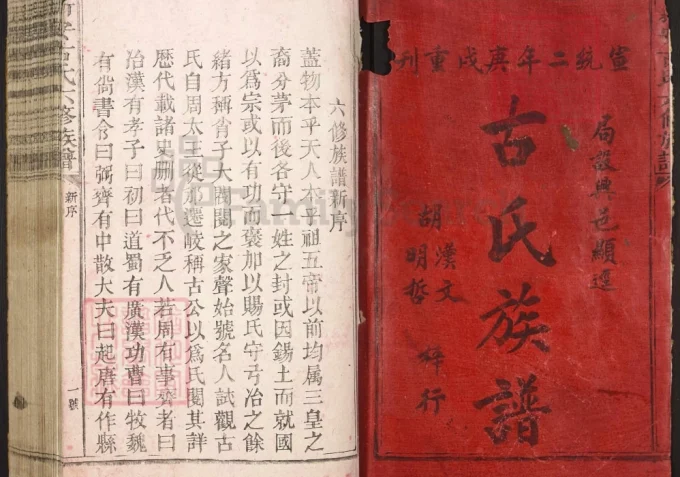 宣統二年庚戌重刊
局設興邑顯逕
古氏族譜
胡漢文
明哲
梓行
六修族譜新序
蓋物本乎天人本乎祖五帝以前均属三皇之
裔分茅而後各守一姓之封或因錫土而就國
以為宗或以有功而褒加以賜氏守弓冶之餘
緒方稱肖子大閥閱之家聲始號名人試觀古
氏自周太王從邠遷岐稱古公以為氏閱其詳
歷代載諸史册者代不乏人若周有事齊者曰
冶漢有孝子曰初曰道蜀有廣漢功曹曰牧魏
有尚書令曰弼齊有中散大夫曰起唐有作縣
古氏六修族譜
新序
一號